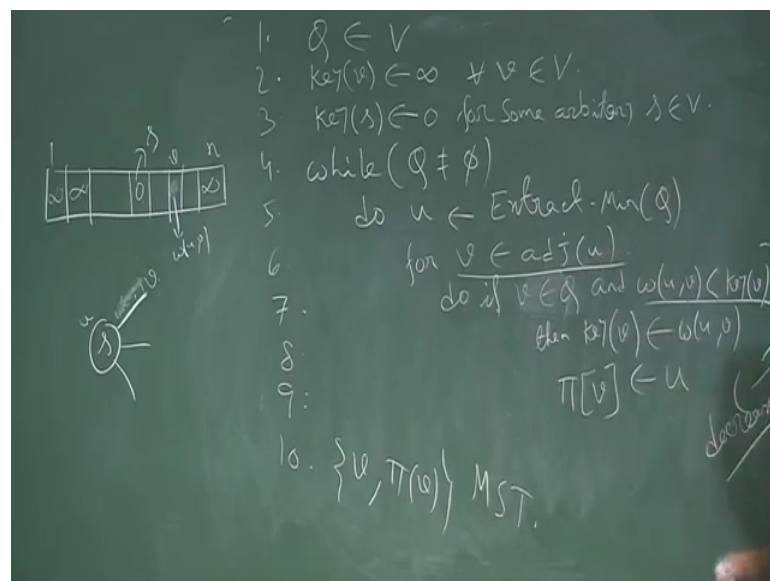 1. Q ← V
2. key(v) ← ∞ ∀ v ∈ V.
3 key(s) ← 0 for some arbitrary s ∈ V.
4. while (Q ≠ φ)
5. do u ← Extract-Min(Q)
6 for v ∈ adj(u)
7. do if v ∈ Q and w(u,v) < key(v)
8. then key(v) ← w(u,v)
9: π[v] ← u
10. {v, π(v)} MST.
1 s v n
∞ ∞ 0 ∞
u v
s